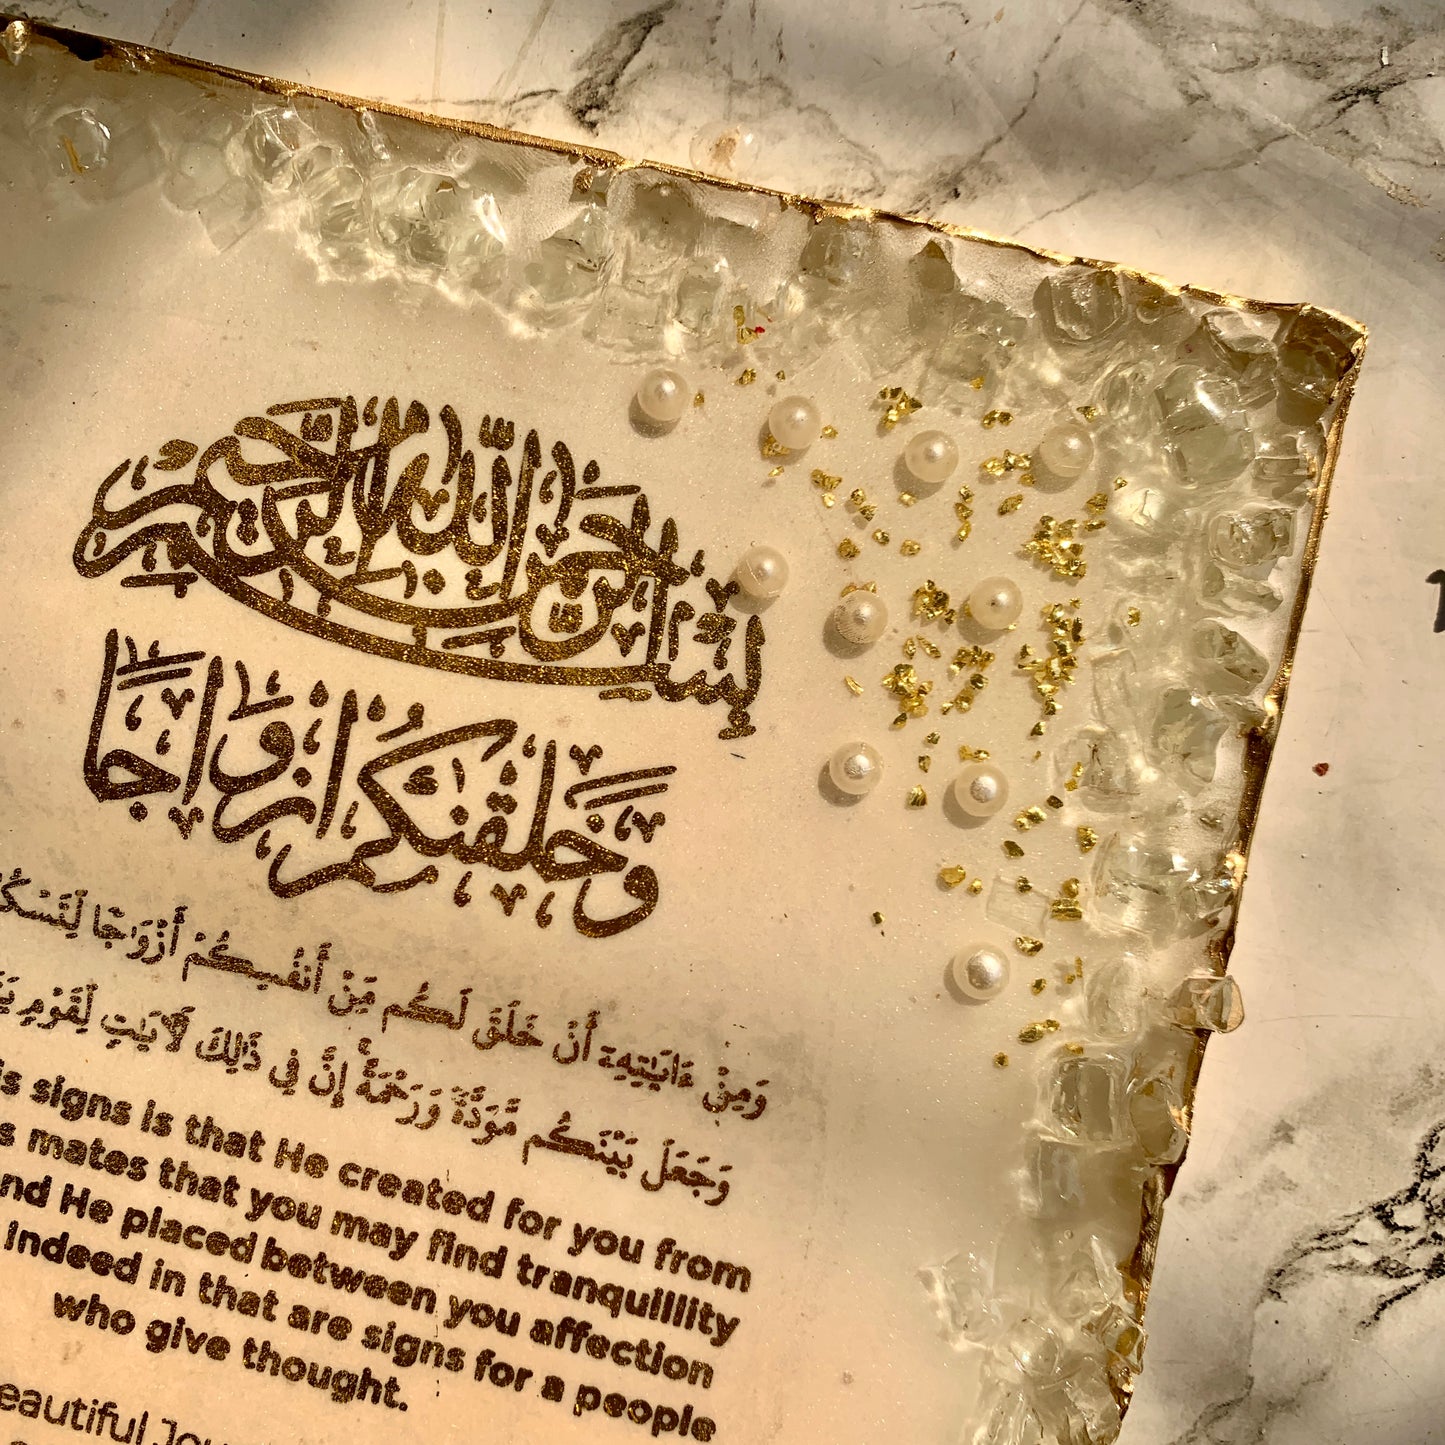 بِسْمِ اللهِ الرَّحْمٰنِ الرَّحِيمِ
وَّخَلَقْنٰكُمْ اَزْوَاجًا
وَمِنْ ءَايَٰتِهِۦٓ أَنْ خَلَقَ لَكُم مِّنْ أَنفُسِكُمْ أَزْوَٰجًا لِّتَسْكُ
وَجَعَلَ بَيْنَكُم مَّوَدَّةً وَرَحْمَةً إِنَّ فِي ذَٰلِكَ لَآيَٰتٍ لِّقَوْمٍ يَ
is signs is that He created for you from
s mates that you may find tranquillity
nd He placed between you affection
Indeed in that are signs for a people
who give thought.
eautiful Jou